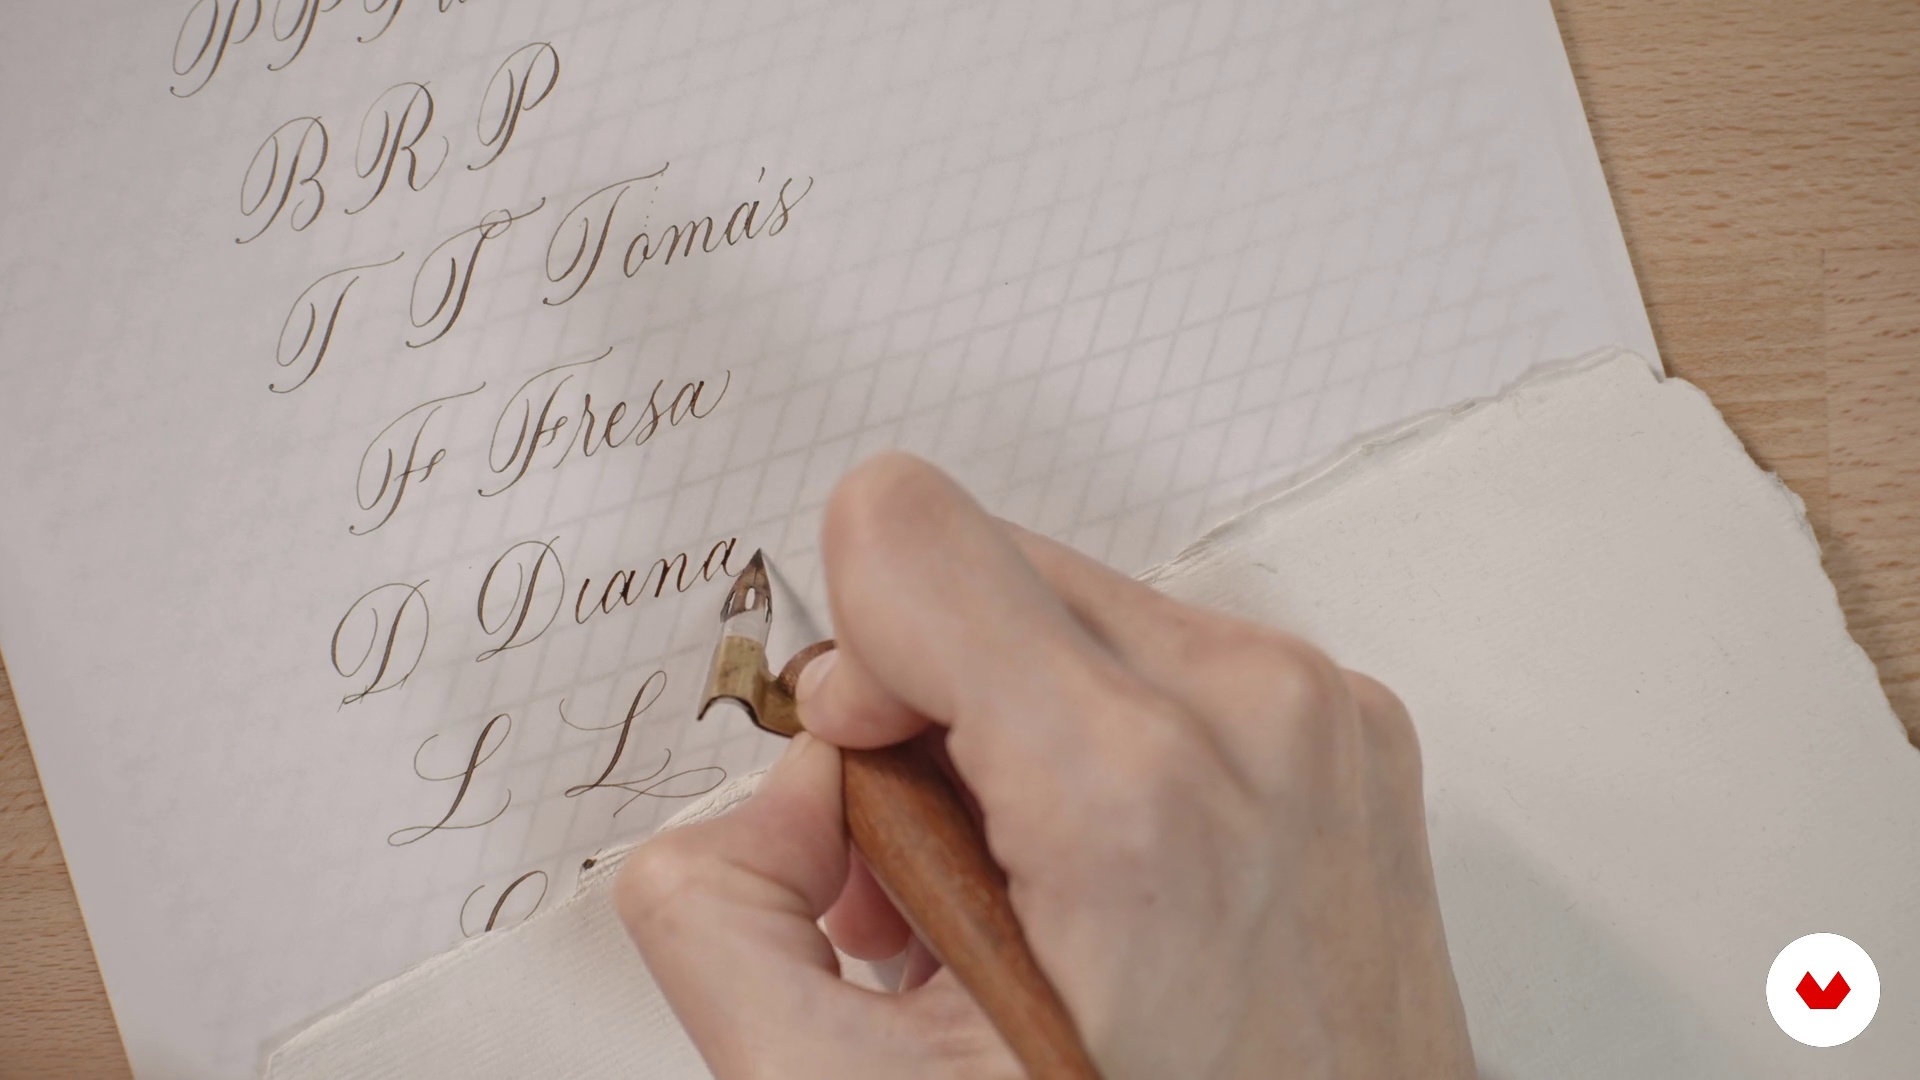 P P P
B R P
T T Tomás
F Fresa
D Diana
L L